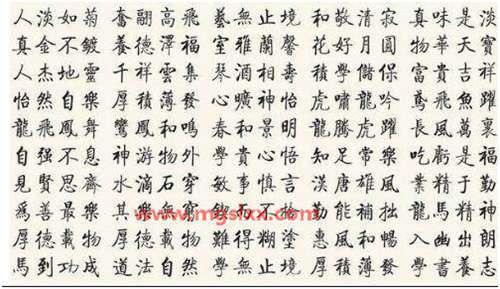 人淡如菊 奮翮高飛 藝無止境 和敬清寂 真味是淡
真金不鍍 養德澤福 室雅蘭馨 花好月圓 物華天寶
人杰地靈 千祥雲集 琴酒相壽 積學儲保 富貴吉祥
怡然自樂 厚積薄發 曠神怡 虎嘯龍吟 鳶飛魚躍
龍飛鳳舞 鸞鳳和鳴 春和景明 龍騰虎躍 長風萬裏
自强不息 神游物外 學貴心悟 知足常樂 吃虧是福
見賢思齊 水滴石穿 敏事慎言 漢唐雄風 業精于勤
爲善最樂 其樂無 不 勤能補拙 龍馬精神
厚德載物 厚德載物 難得糊塗 惠風和暢 入幽出朗
馬到功成 道法自然 學無止境 厚積薄發 學書養志
www.mgsfxx.com